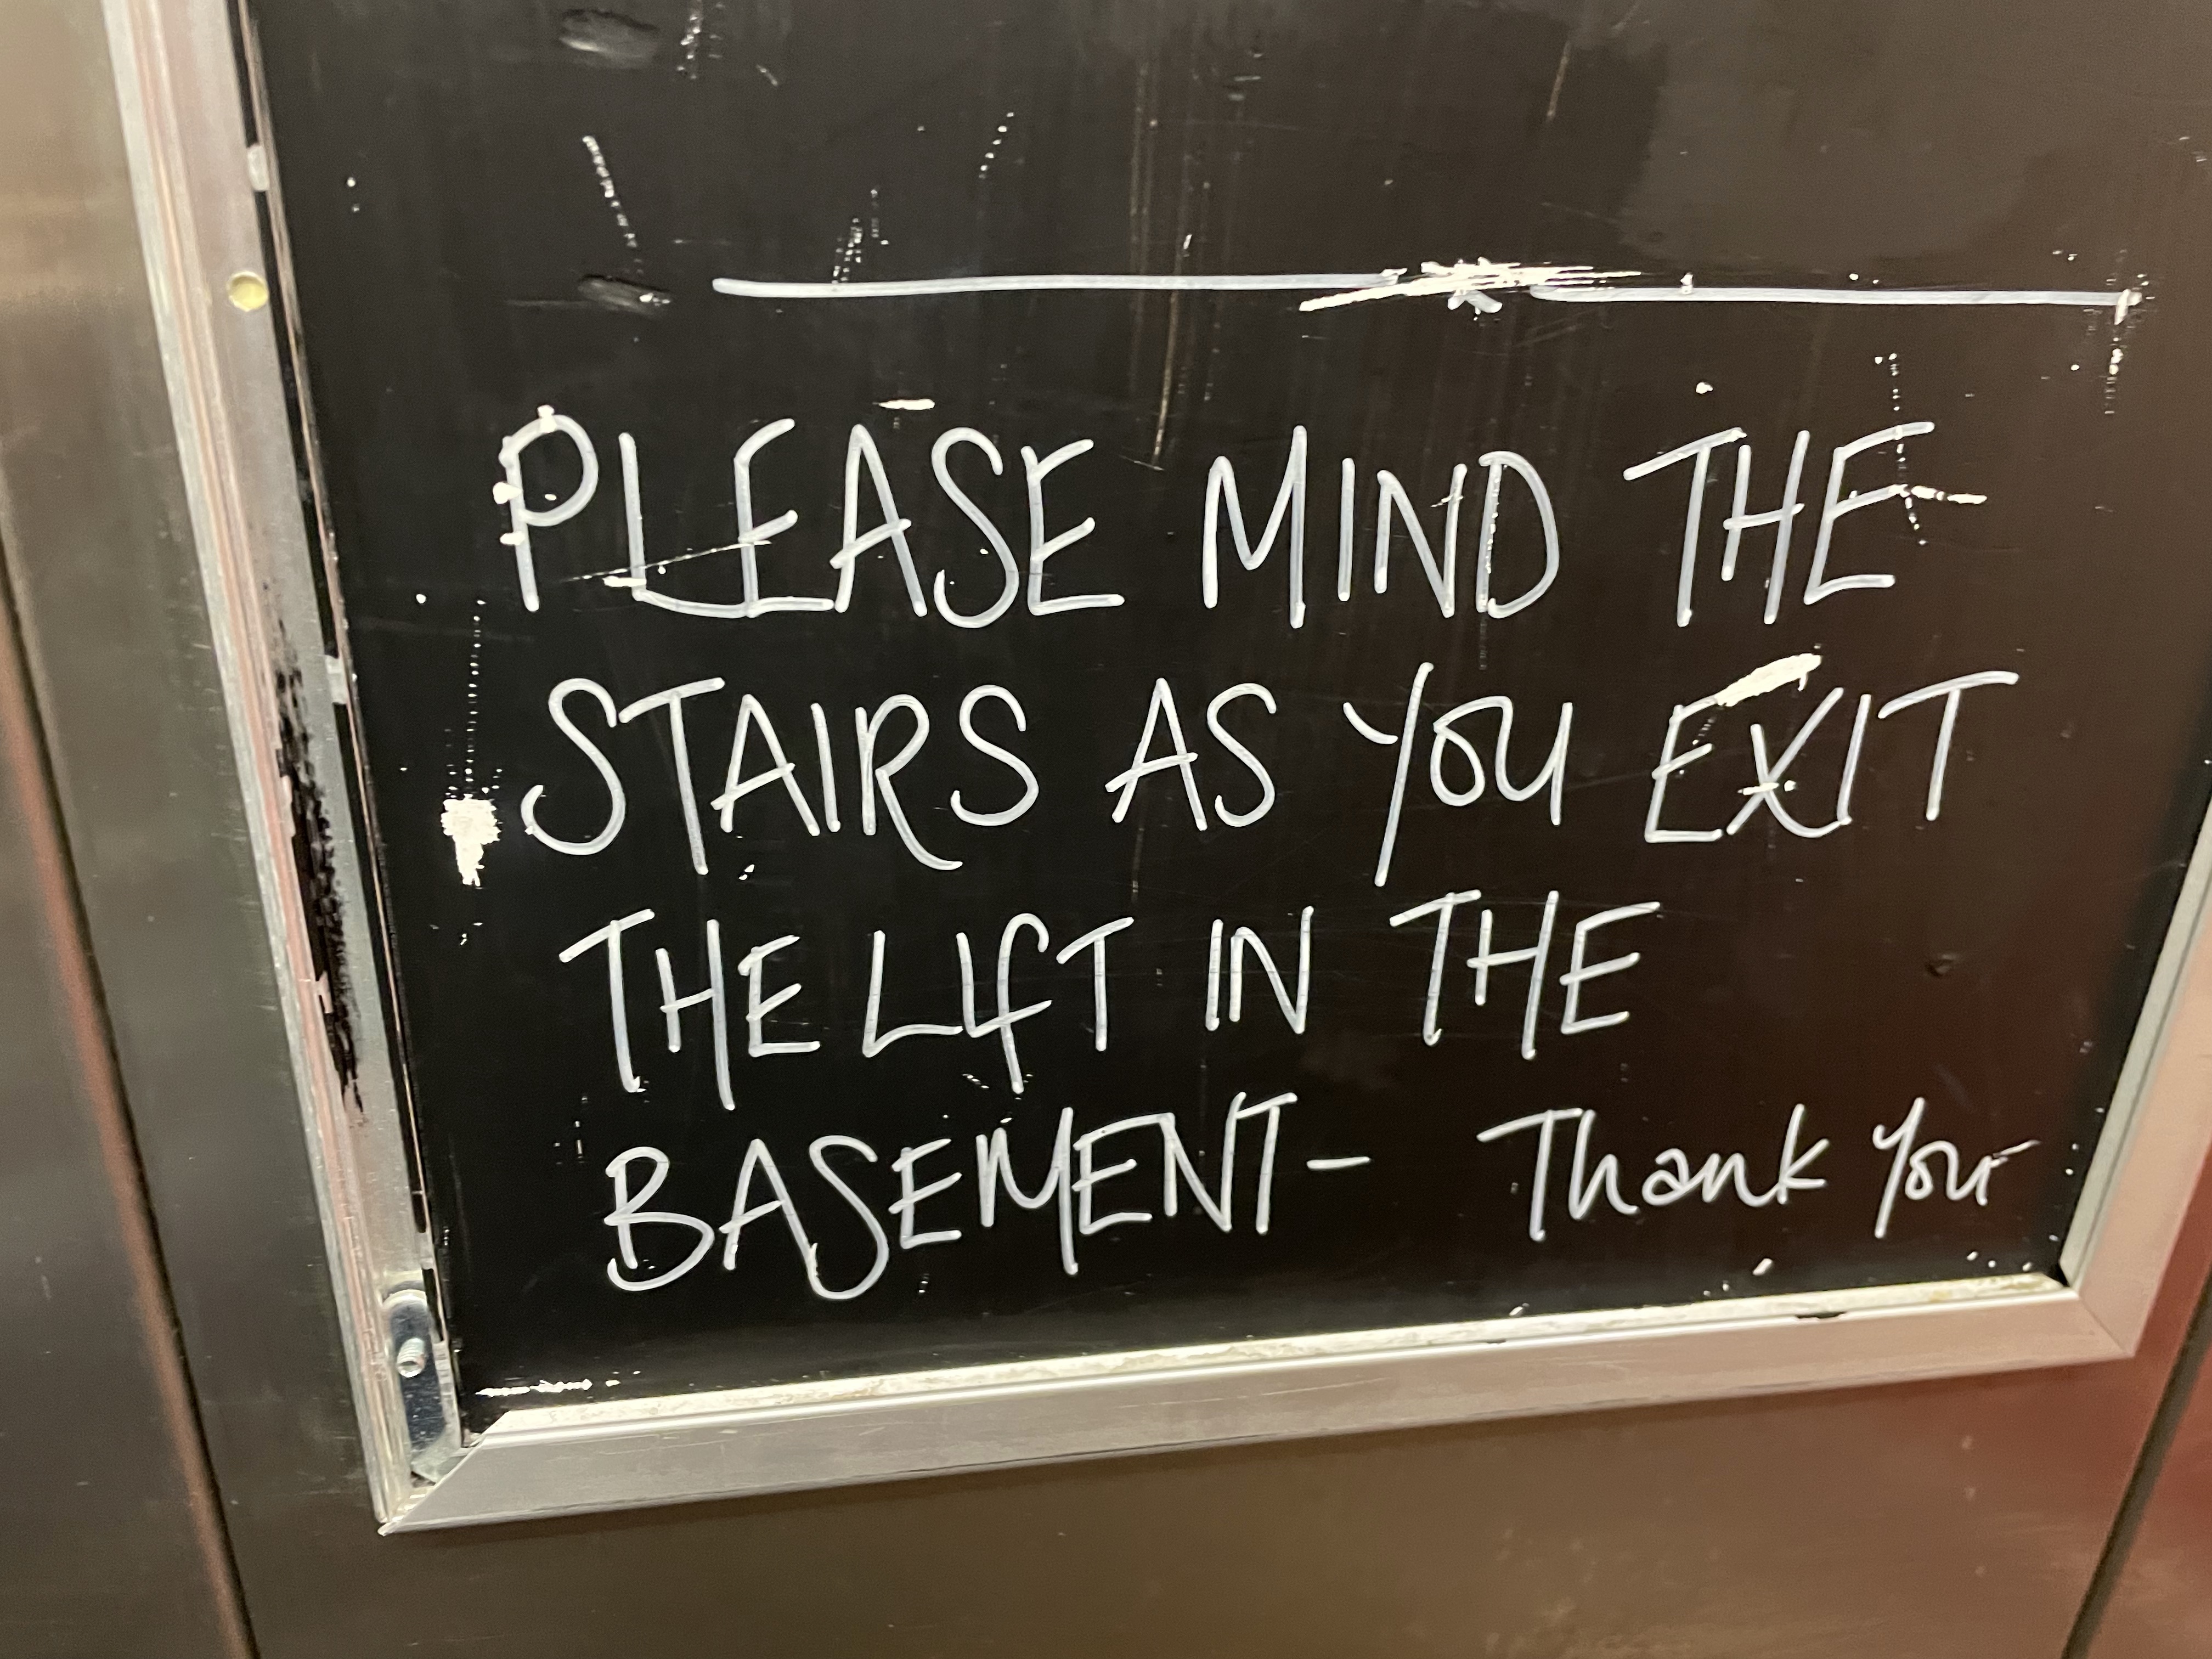 PLEASE MIND THE
STAIRS AS YOU EXIT
THE LIFT IN THE
BASEMENT - Thank You